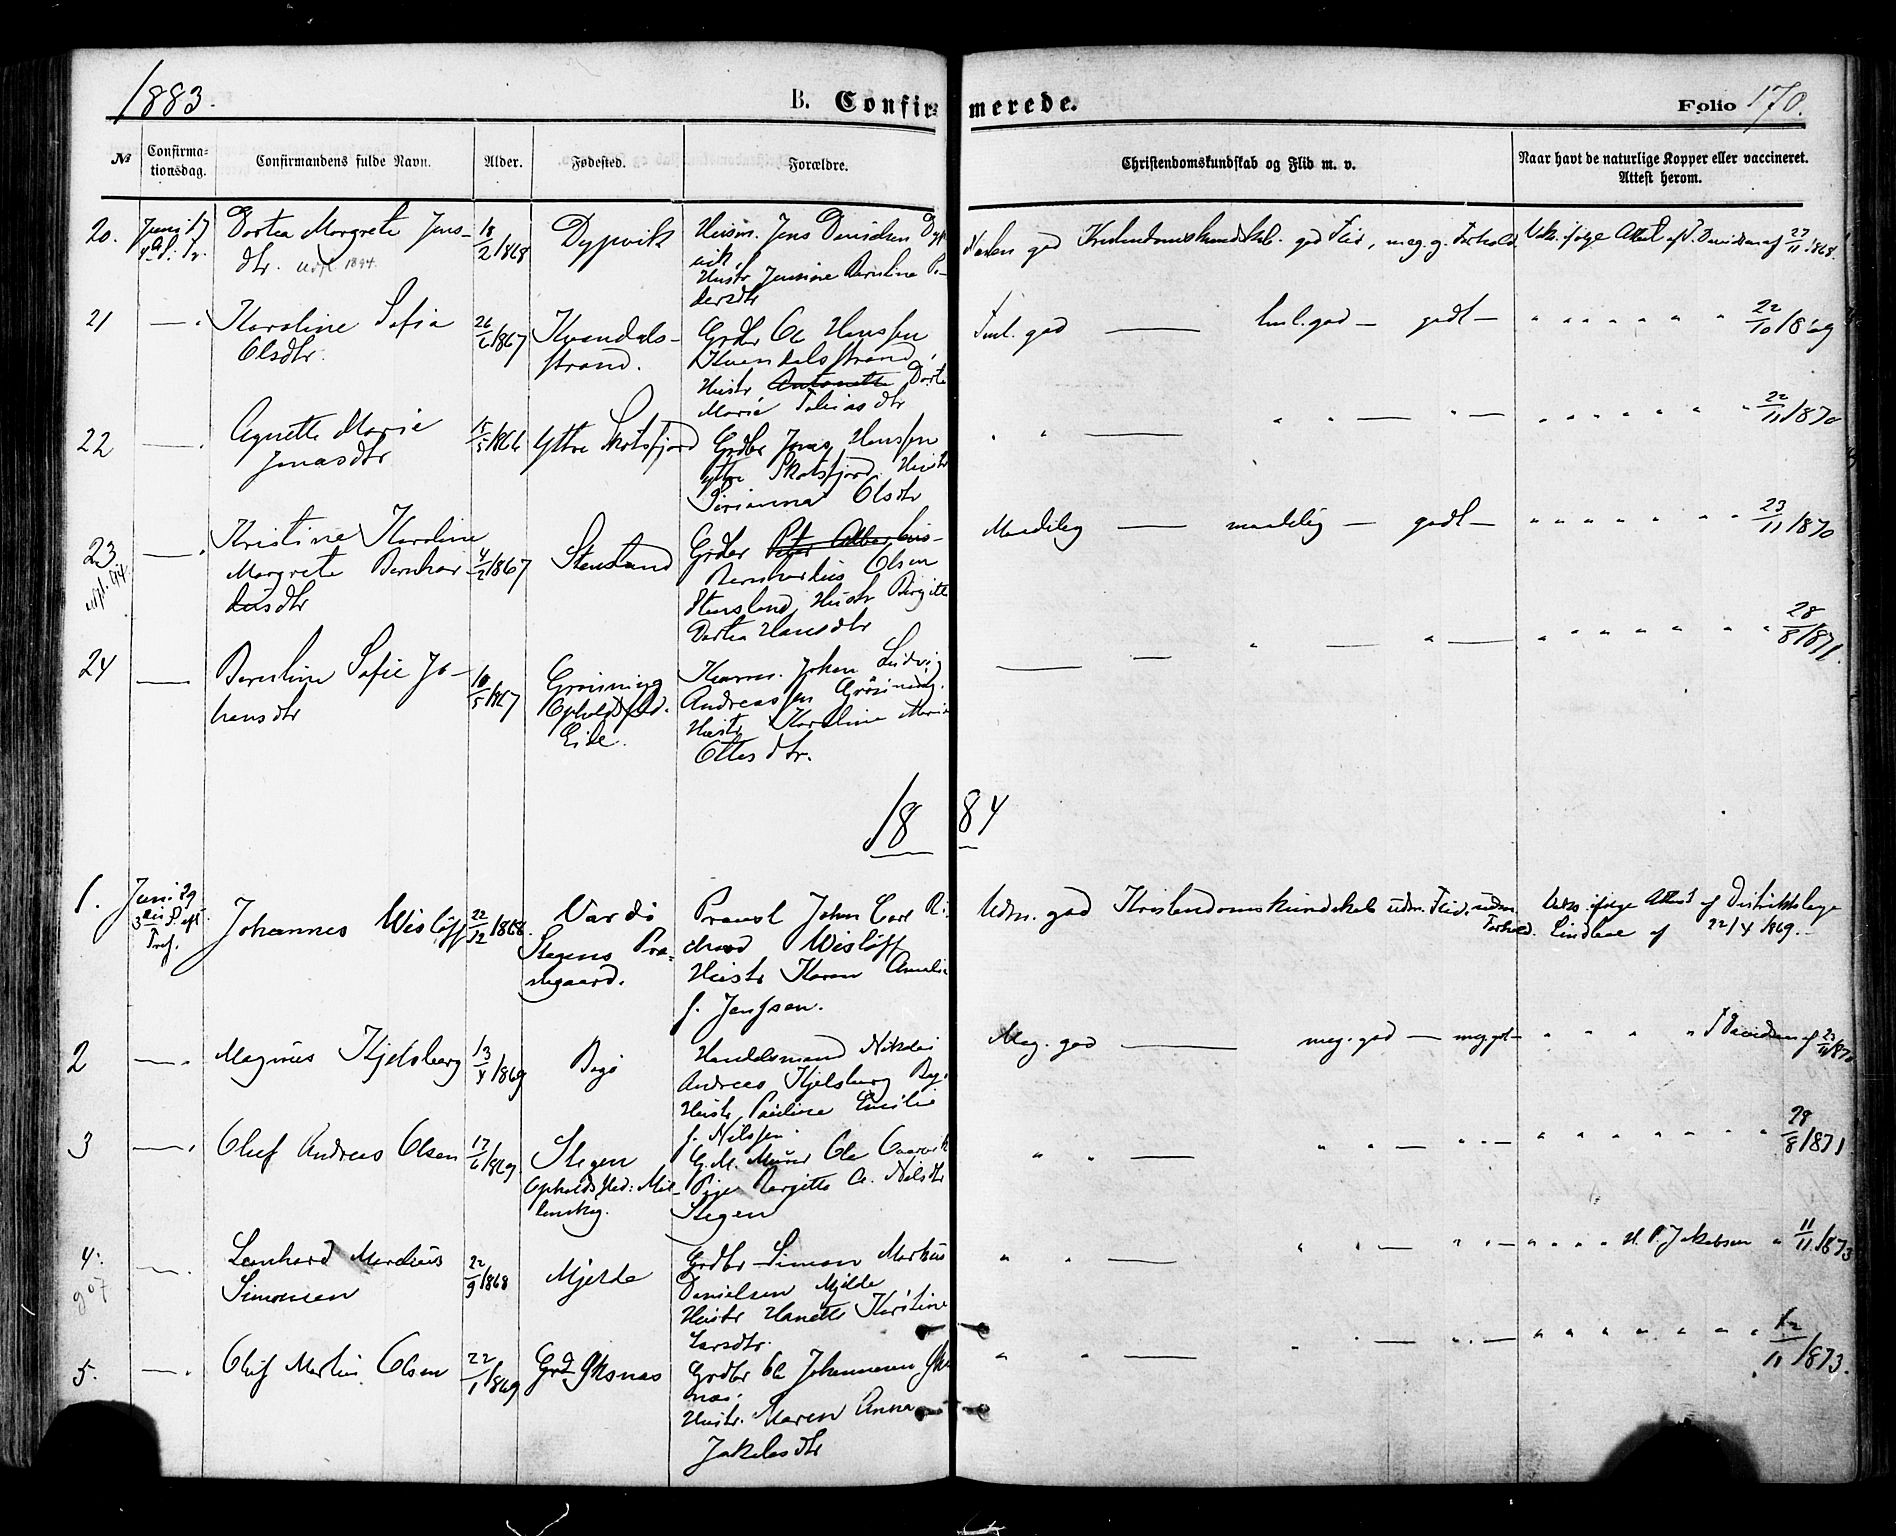 1883. B. Confirmerede. Folio 170.
№ Confirmationsdag. Confirmandens fulde Navn. Alder. Fødested. Forældre. Christendomskundskab og Flid m. v. Naar havt de naturlige Kopper eller vaccineret. Attest herom.
20. Juni 17 Dortea Margrete Jens-
dtr. 1894.
18/2 1868 Dypvik
Husm. Jens Danielsen Dyp
vik,
Hustr Jensine Bernline Pe-
dersdtr
Næsten god Kristendomskundskab. god Flid, meg. g. Forhold. Vakc. ifølge Attest af J. Davidsen af 27/11 1868.
21 — Karoline Sofia
Olsdtr.
26/6 1867 Kvandals-
strand.
Grdbr Ole Hanssen
Kvandalsstrand,
Hustr Antonette Dorte
Marie Tobiasdtr
Tml. god — tml. god — godt — " " " " " " 22/10 1869
22 — Agnette Marie
Jonasdtr
15/5 1866 Yttre Skotsfjord
Grdbr Jonas Hanssen
Yttre Skotsfjord. Hustr
Olsdtr
" " — " " — " — " " " " " " 22/11 1870
23 — Kristine Karoline
Margrete Bernhar
dusdtr
4/2 1867 Stensland
Grdbr Peter Albertus-
Bernhardus Olsen
Stensland, Hustr Birgitte
Dortea Hansdtr
Maadelig — maadelig — godt — " " " " " " 23/11 1870
24 — Bernline Sofie Jo-
hansdtr
10/5 1867 Grøsning
Opholdssted.
Eide.
Johan Ludvig
Andreassen Grøsning.
Hustr Karoline Marie
Ottesdtr.
— — " — " — " " " " " " 28/8 1871.
1884
1. Juni 29
3die S. eft.
Tref.
Johannes Wisløff 22/12 1868. Vardø
Stegens Præ-
stegaard.
Provst John Carl Ri-
chard Wisløff
Hustr Karen Amalie
f. Janssen.
Udm. god Kristendomskundskab udm. Flid. udm.
Forhold.
Vakc. ifølge Attest af Distriktslæge
Lindboe af 22/4 1869.
2 — Magnus Kjelsberg 13/4 1869 Bogø
Handelsmand Nikolai
Andreas Kjelsberg Bog.
Hustr Pauline Emilie
f. Nilssen.
Meg. god — meg. god — meg. gdt — " " " " J. Davidsen af 23/11 1870
3 — Oluf Andreas Olsen 17/6 1869 Stegen
Opholdssted: Mel-
lemskog.
G.M. Murer Ole
Pige Bergitte C. Nilsdtr
Stegen
" " — " " — " " — " " " " " " " " 28/8 1871
4. — Lenhard Mardius
Simonsen
22/9 1868 Mjelde
Grdbr Simon Markus
Danielsen Mjelde
Hustr Hanette Kirstine
Larsdtr.
" " — " " — " " — " " " " H. P. Jakobsen " 11/11 1873
5. — Oluf Martin Olsen 22/1 1869 Grd. Gksnas
Grdbr Ole Johannesen
nas.
Hustr. Maren Anna
Jakobsdtr
" " — " — " — " " " " " " " " 12/11 1873.